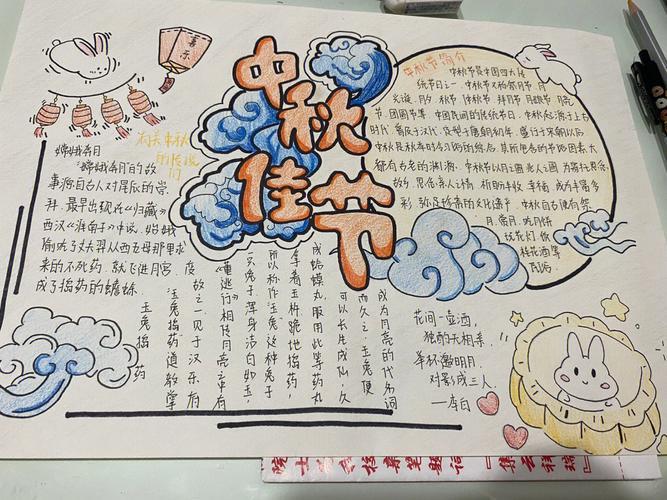 喜乐
中秋佳节
有关中秋
的传说
们
嫦娥奔月
嫦娥奔月的故
事源自古人对星辰的崇
拜,最早出现在《归藏》
西汉《淮南子》中说,嫦娥
偷吃了丈夫羿从西王母那里求
来的不死药,就飞进月宫,
成了捣药的蟾蜍
中秋节简介
中秋节是中国四大传
统节日之一,中秋节又称祭月节、月
光诞、月夕、秋节、仲秋节、拜月节、月娘节、月亮
节、团圆节等,中国民间的传统节日,中秋起源于上古
时代,普及于汉代,定型于唐朝初年,盛行于宋朝以后
都有古老的渊源,中秋节以月之圆兆人之圆,为寄托思乡
故,思念亲人之情,祈盼丰收、幸福,成为丰富多
彩、弥足珍贵的文化遗产,中秋自古便有祭
月、赏月、吃月饼
玩花灯、饮
桂花酒等
民俗
玉兔捣药
玉兔捣药道教掌
故之一见于汉乐府
《董逃行》相传月亮之中有
一只兔子浑身洁白如玉,
所以称作玉兔这种兔子
拿着玉杵,跪地捣药,
成蛤蟆丸,服用此等药丸
可以长生成仙,久
而久之,玉兔便
成为月亮的代名词
花间一壶酒,
独酌无相亲,
举杯邀明月,
对影成三人
—李白